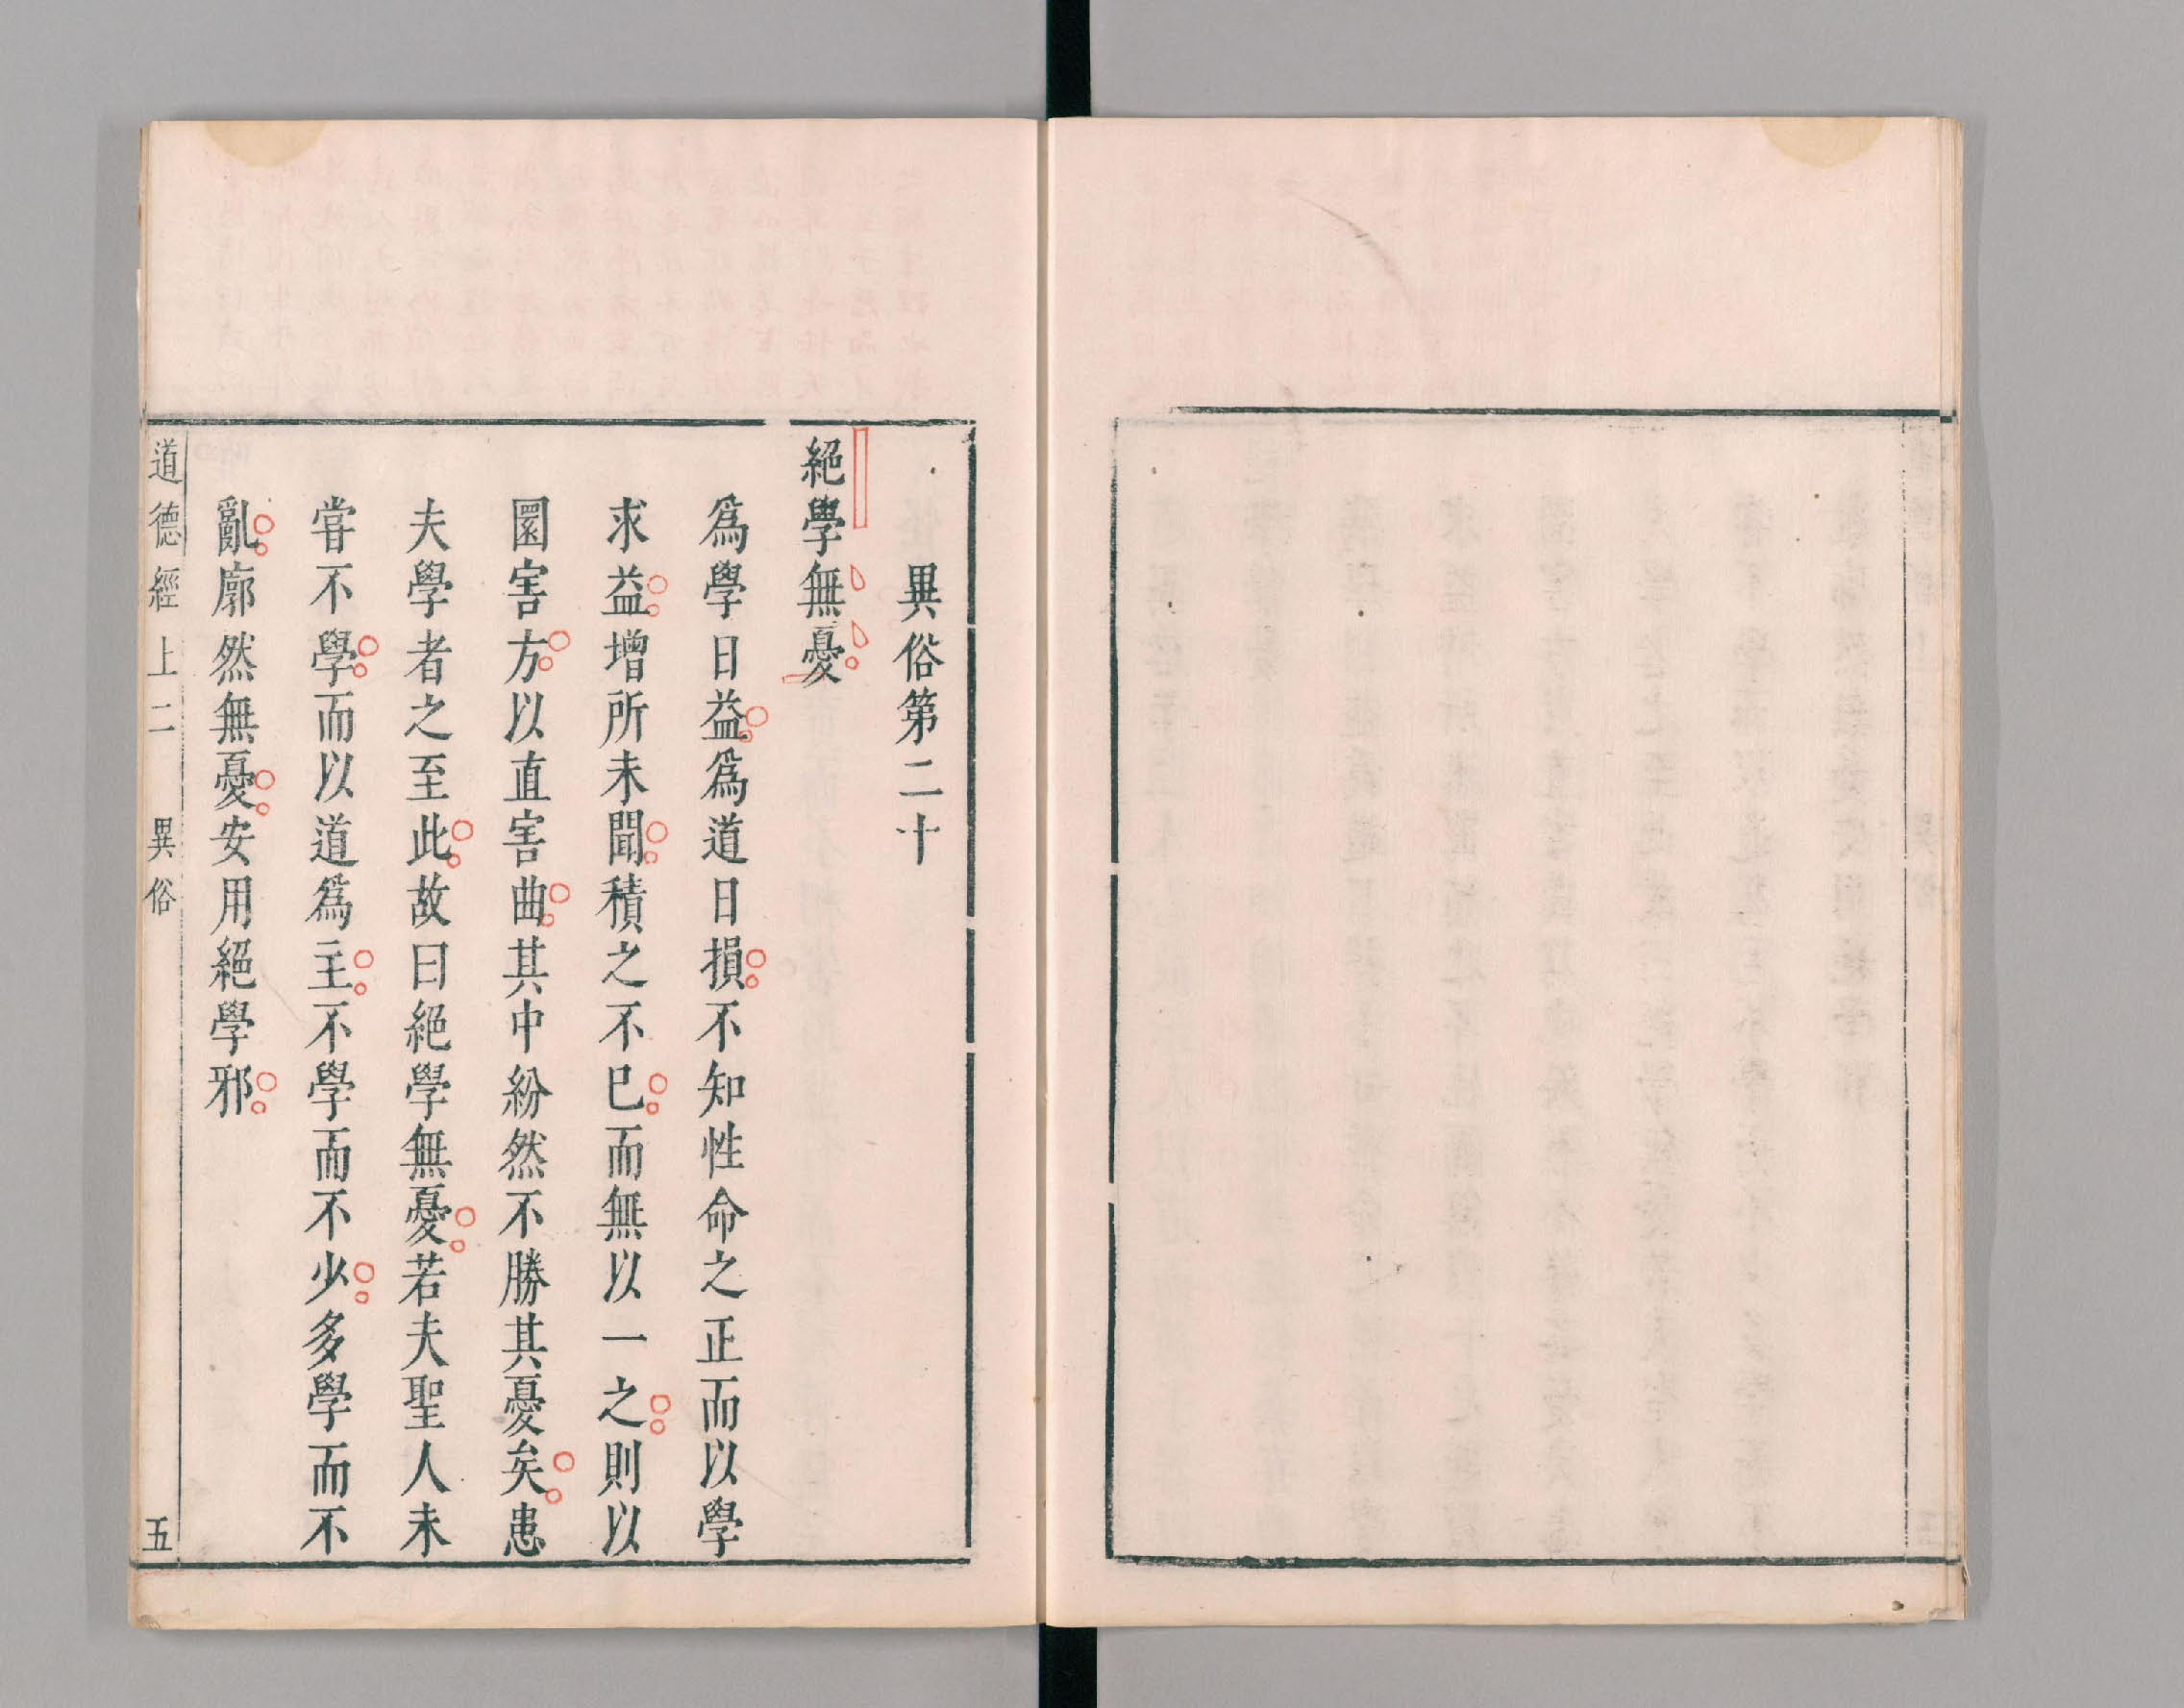 異俗第二十
絕學無憂
爲學日益爲道日損不知性命之正而以學
求益增所未聞積之不已而無以一之則以
圜害方以直害曲其中紛然不勝其憂矣患
夫學者之至此故曰絕學無憂若夫聖人未
嘗不學而以道爲主不學而不少多學而不
亂廓然無憂安用絕學邪
道德經上二 異俗 五